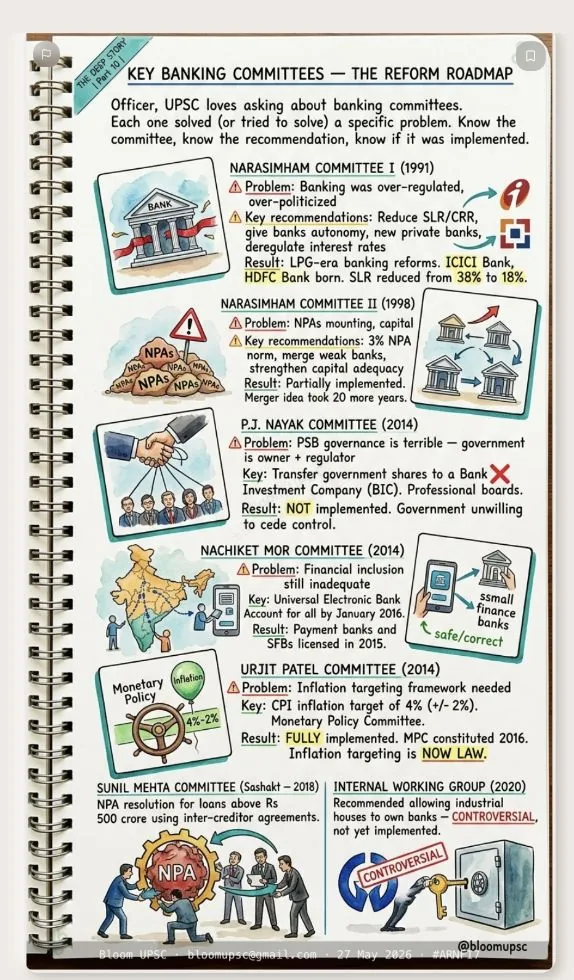 THE DEEP STORY
| Part 10 |
KEY BANKING COMMITTEES — THE REFORM ROADMAP
Officer, UPSC loves asking about banking committees.
Each one solved (or tried to solve) a specific problem. Know the
committee, know the recommendation, know if it was implemented.
NARASIMHAM COMMITTEE I (1991)
BANK
Problem: Banking was over-regulated,
over-politicized
Key recommendations: Reduce SLR/CRR,
give banks autonomy, new private banks,
deregulate interest rates
Result: LPG-era banking reforms. ICICI Bank,
HDFC Bank born. SLR reduced from 38% to 18%.
NARASIMHAM COMMITTEE II (1998)
NPAs
NPAs NPAs NPAs
NPAs NPAs NPAs NPAs
Problem: NPAs mounting, capital
Key recommendations: 3% NPA
norm, merge weak banks,
strengthen capital adequacy
Result: Partially implemented.
Merger idea took 20 more years.
P.J. NAYAK COMMITTEE (2014)
Problem: PSB governance is terrible — government
is owner + regulator
Key: Transfer government shares to a Bank
Investment Company (BIC). Professional boards.
Result: NOT implemented. Government unwilling
to cede control.
NACHIKET MOR COMMITTEE (2014)
Problem: Financial inclusion
still inadequate
Key: Universal Electronic Bank
Account for all by January 2016.
Result: Payment banks and
SFBs licensed in 2015.
ssmall
finance
banks
safe/correct
URJIT PATEL COMMITTEE (2014)
Monetary
Policy
Inflation
4%-2%
Problem: Inflation targeting framework needed
Key: CPI inflation target of 4% (+/- 2%).
Monetary Policy Committee.
Result: FULLY implemented. MPC constituted 2016.
Inflation targeting is NOW LAW.
SUNIL MEHTA COMMITTEE (Sashakt – 2018)
NPA resolution for loans above Rs
500 crore using inter-creditor agreements.
NPA
INTERNAL WORKING GROUP (2020)
Recommended allowing industrial
houses to own banks — CONTROVERSIAL,
not yet implemented.
CONTROVERSIAL
@bloomupsc
Bloom UPSC · bloomupsc@gmail.com · 27 May 2026 · #ARNF17